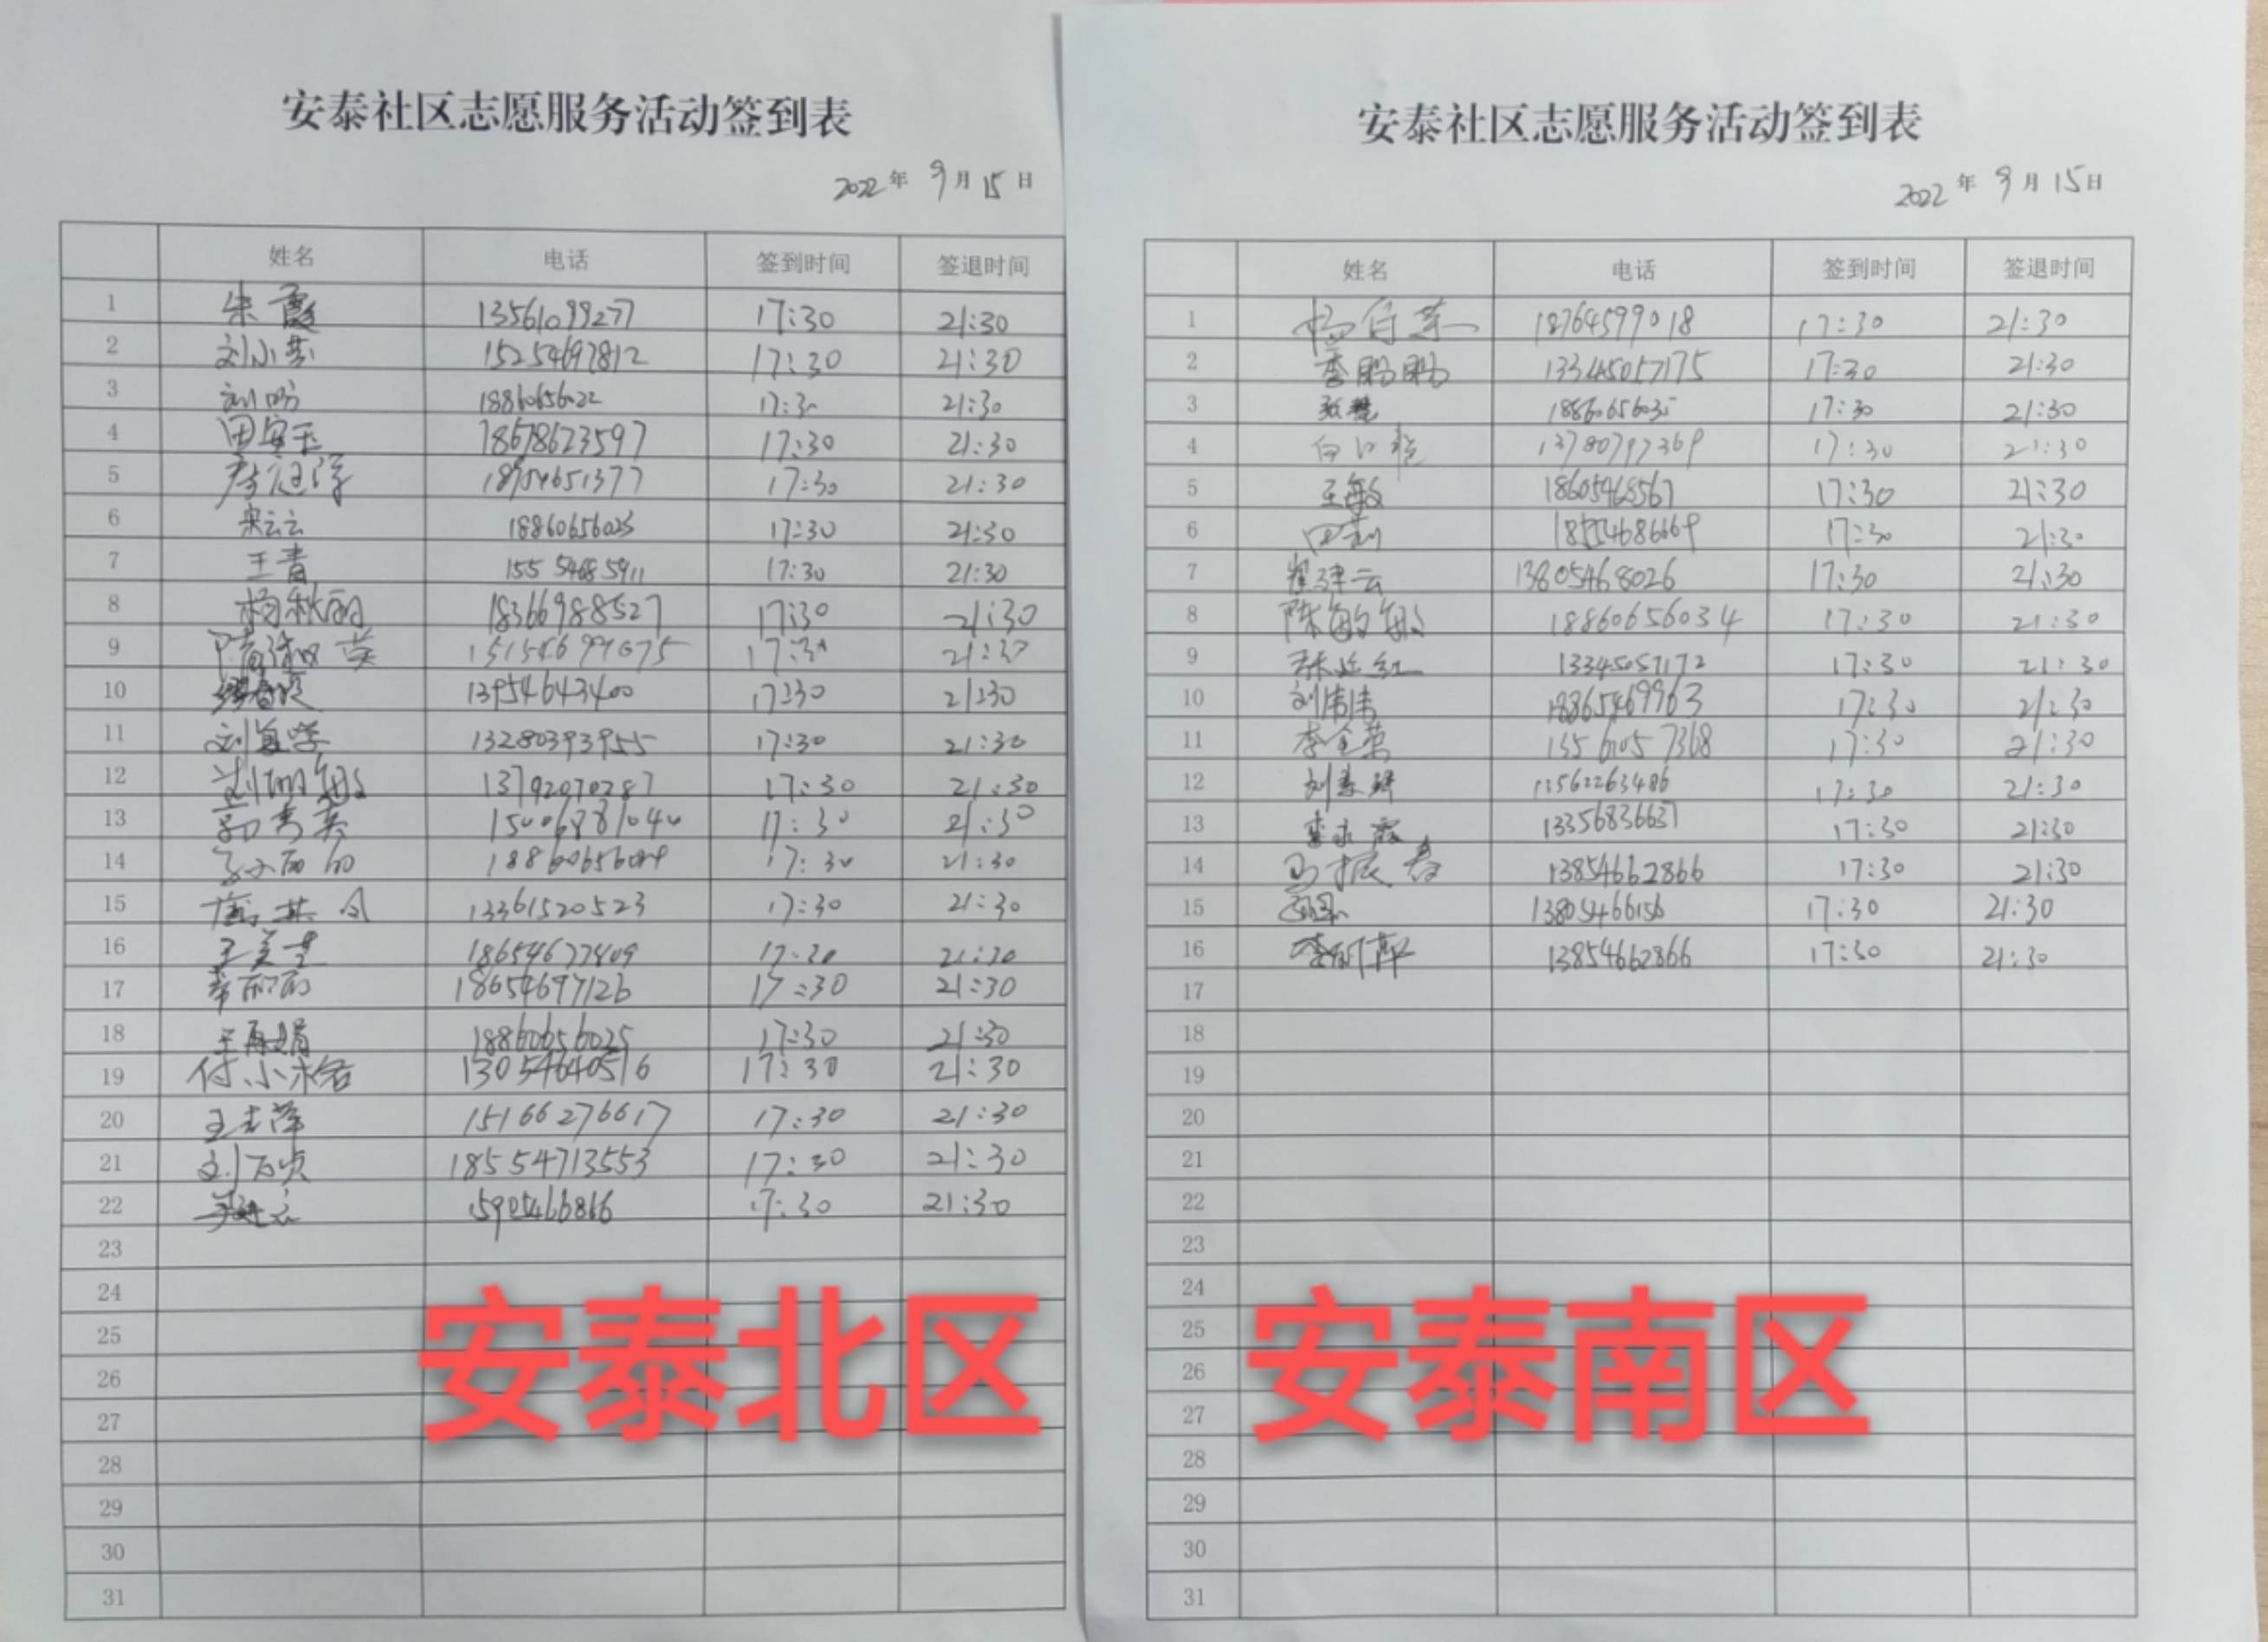 安泰社区志愿服务活动签到表
2022年 9月 15日
姓名 电话 签到时间 签退时间
1 朱霞 13561099277 17:30 21:30
2 刘小燕 15254697812 17:30 21:30
3 刘昉 18860656022 17:30 21:30
4 田安玉 18678623597 17:30 21:30
5 18954651377 17:30 21:30
6 宋云云 18860656023 17:30 21:30
7 王青 15554685911 17:30 21:30
8 杨秋丽 18366988527 17:30 21:30
9 17:30 21:30
10 13954643400 17:30 21:30
11 13280393955 17:30 21:30
12 刘丽敏 13792070287 17:30 21:30
13 郭秀英 15006881040 17:30 21:30
14 17:30 21:30
15 13361520523 17:30 21:30
16 18654677409 17:30 21:30
17 李丽丽 18654697126 17:30 21:30
18 王再娟 18860656025 17:30 21:30
19 付小格 13054640516 17:30 21:30
20 王志萍 15166276617 17:30 21:30
21 刘万贞 18554713553 17:30 21:30
22 17:30 21:30
23
24
25
26
27
28
29
30
31
安泰北区
安泰社区志愿服务活动签到表
2022年 9月 15日
姓名 电话 签到时间 签退时间
1 18764599018 17:30 21:30
2 李鹏鹏 13345057175 17:30 21:30
3 17:30 21:30
4 13780797369 17:30 21:30
5 王敏 18605468567 17:30 21:30
6 田莉 18554686669 17:30 21:30
7 崔建云 13805468026 17:30 21:30
8 陈敏敏 18860656034 17:30 21:30
9 13345057172 17:30 21:30
10 刘伟伟 18865469963 17:30 21:30
11 李金荣 13561057368 17:30 21:30
12 13562263486 17:30 21:30
13 李永霞 13356836637 17:30 21:30
14 马振春 13854662866 17:30 21:30
15 13805466156 17:30 21:30
16 13854662866 17:30 21:30
17
18
19
20
21
22
23
24
25
26
27
28
29
30
31
安泰南区